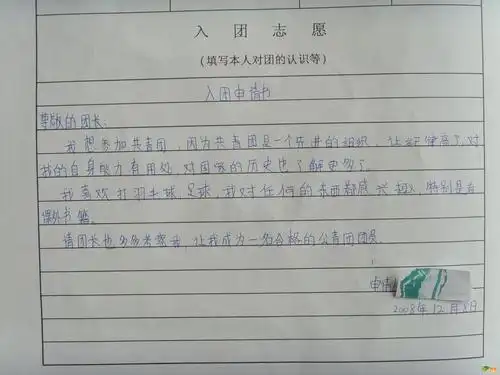 入团志愿
(填写本人对团的认识等)
入团申请书
尊敬的团长:
我想参加共青团,因为共青团是一个先进的组织,让
我的自身能力有用处,对国家的历史也了解更多了。
我喜欢打羽毛球、足球,我对任何的东西都感兴趣,特别是在
课外书籍。
请团长也多多考察我,让我成为一名合格的公青团团员。
申请
2008年12月8日